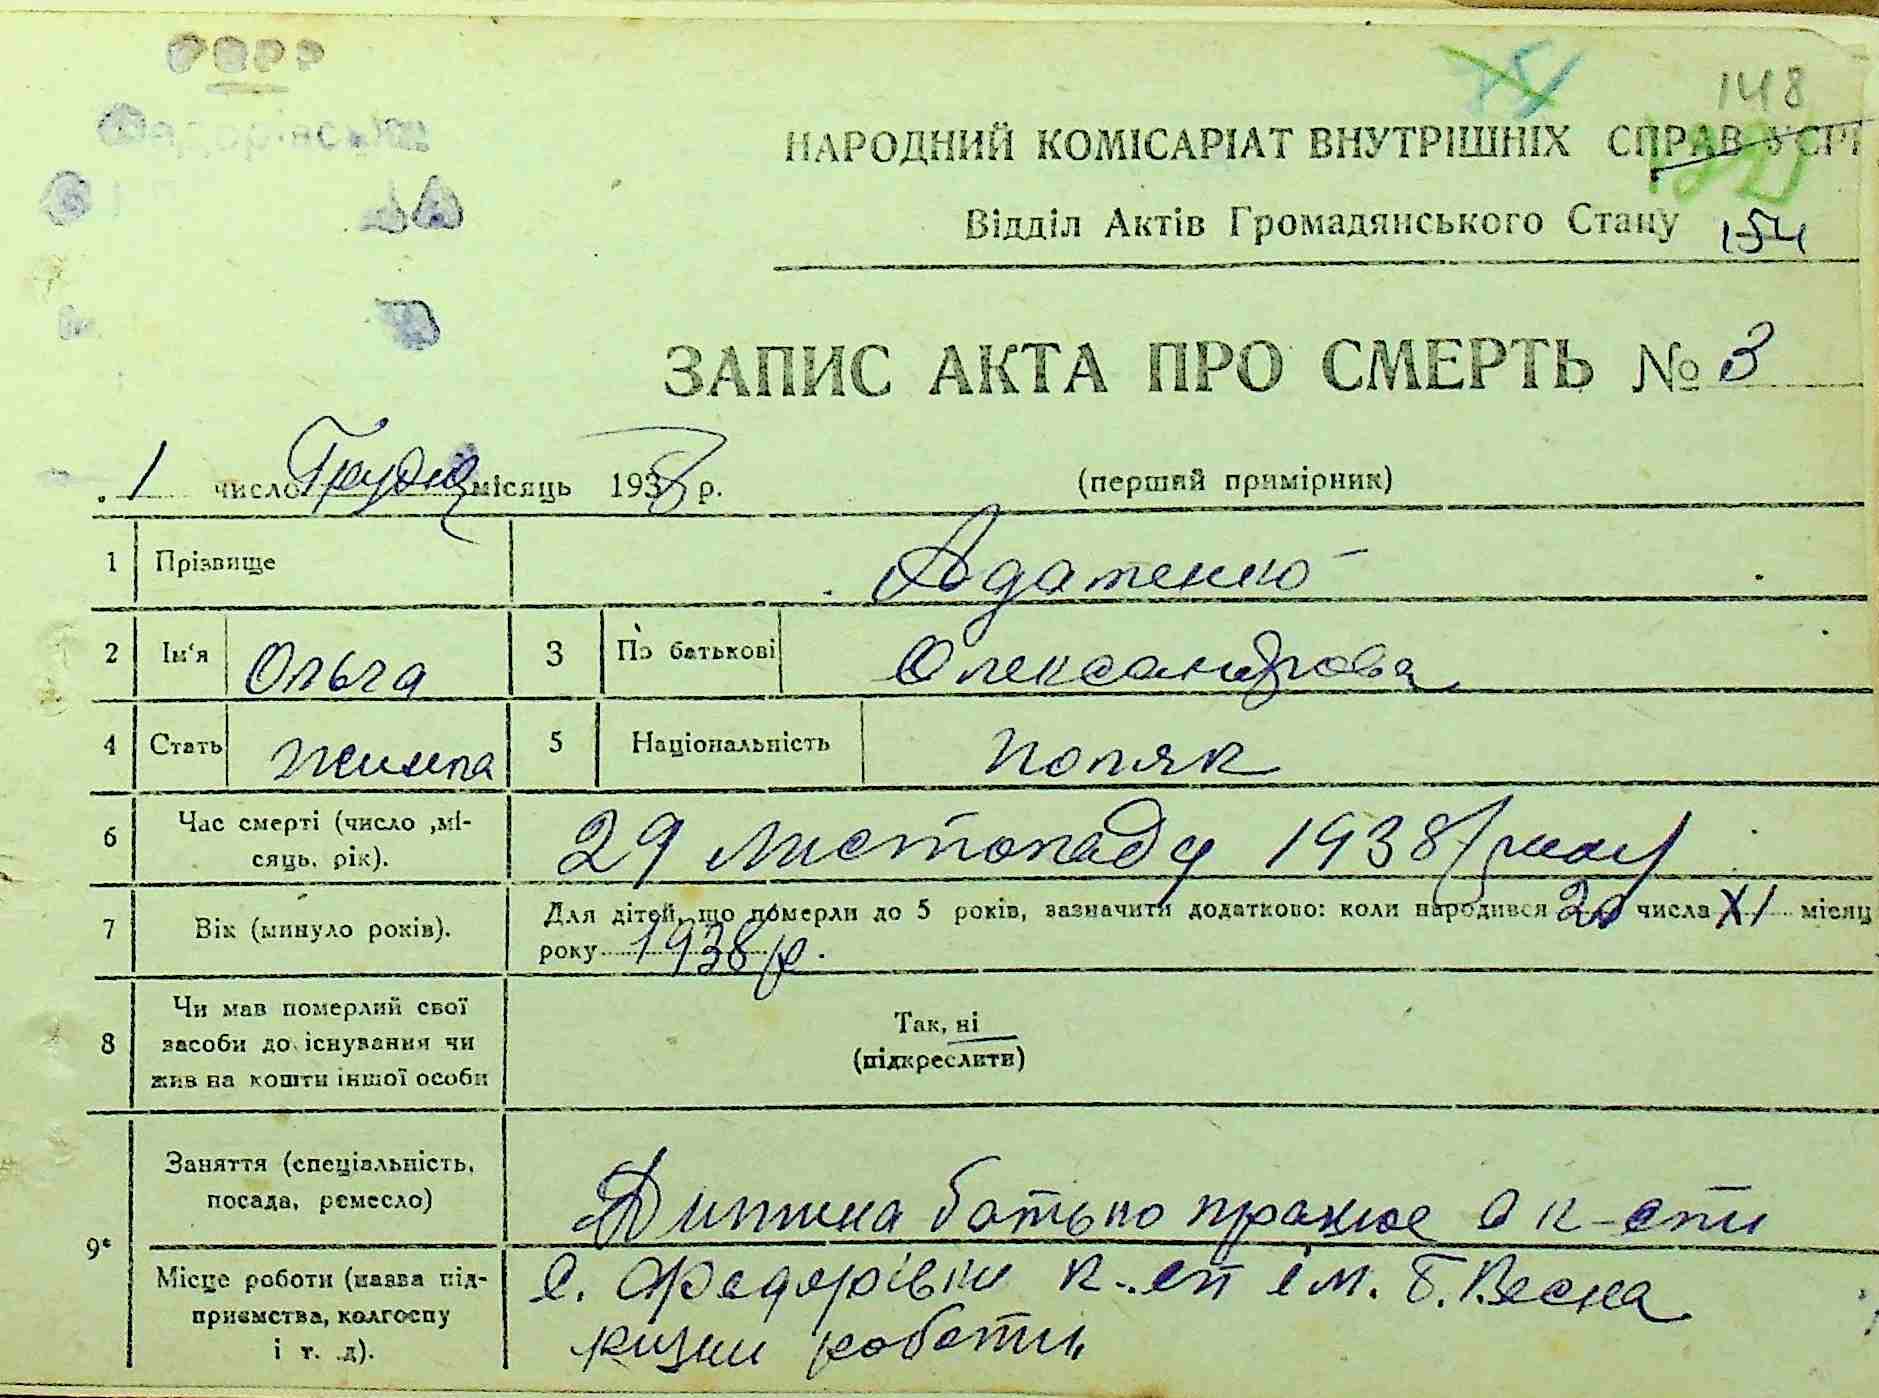 148
НАРОДНИЙ КОМІСАРІАТ ВНУТРІШНІХ СПРАВ УСРР
Відділ Актів Громадянського Стану 154
ЗАПИС АКТА ПРО СМЕРТЬ № 3
1 число Грудня місяць 1938 р. (перший примірник)
1 Прізвище Адатенко
2 Ім'я Ольга 3 По батькові Олександрова
4 Стать Жіноча 5 Національність Поляк
6 Час смерті (число ,мі- 29 листопаду 1938 року
сяць, рік).
7 Вік (минуло років). Для дітей, що померли до 5 років, зазначити додатково: коли народився 20 числа XI місяц
року 1938 р.
8 Чи мав померлий свої
засоби до існування чи
жив на кошти іншої особи
Так, ні
(підкреслити)
9* Заняття (спеціальність,
посада, ремесло)
Дитина батько працює в к-спі
Місце роботи (назва під-
приємства, колгоспу
і т. д).
с. Федорівки к-сп ім. Б. Весна
різни роботи